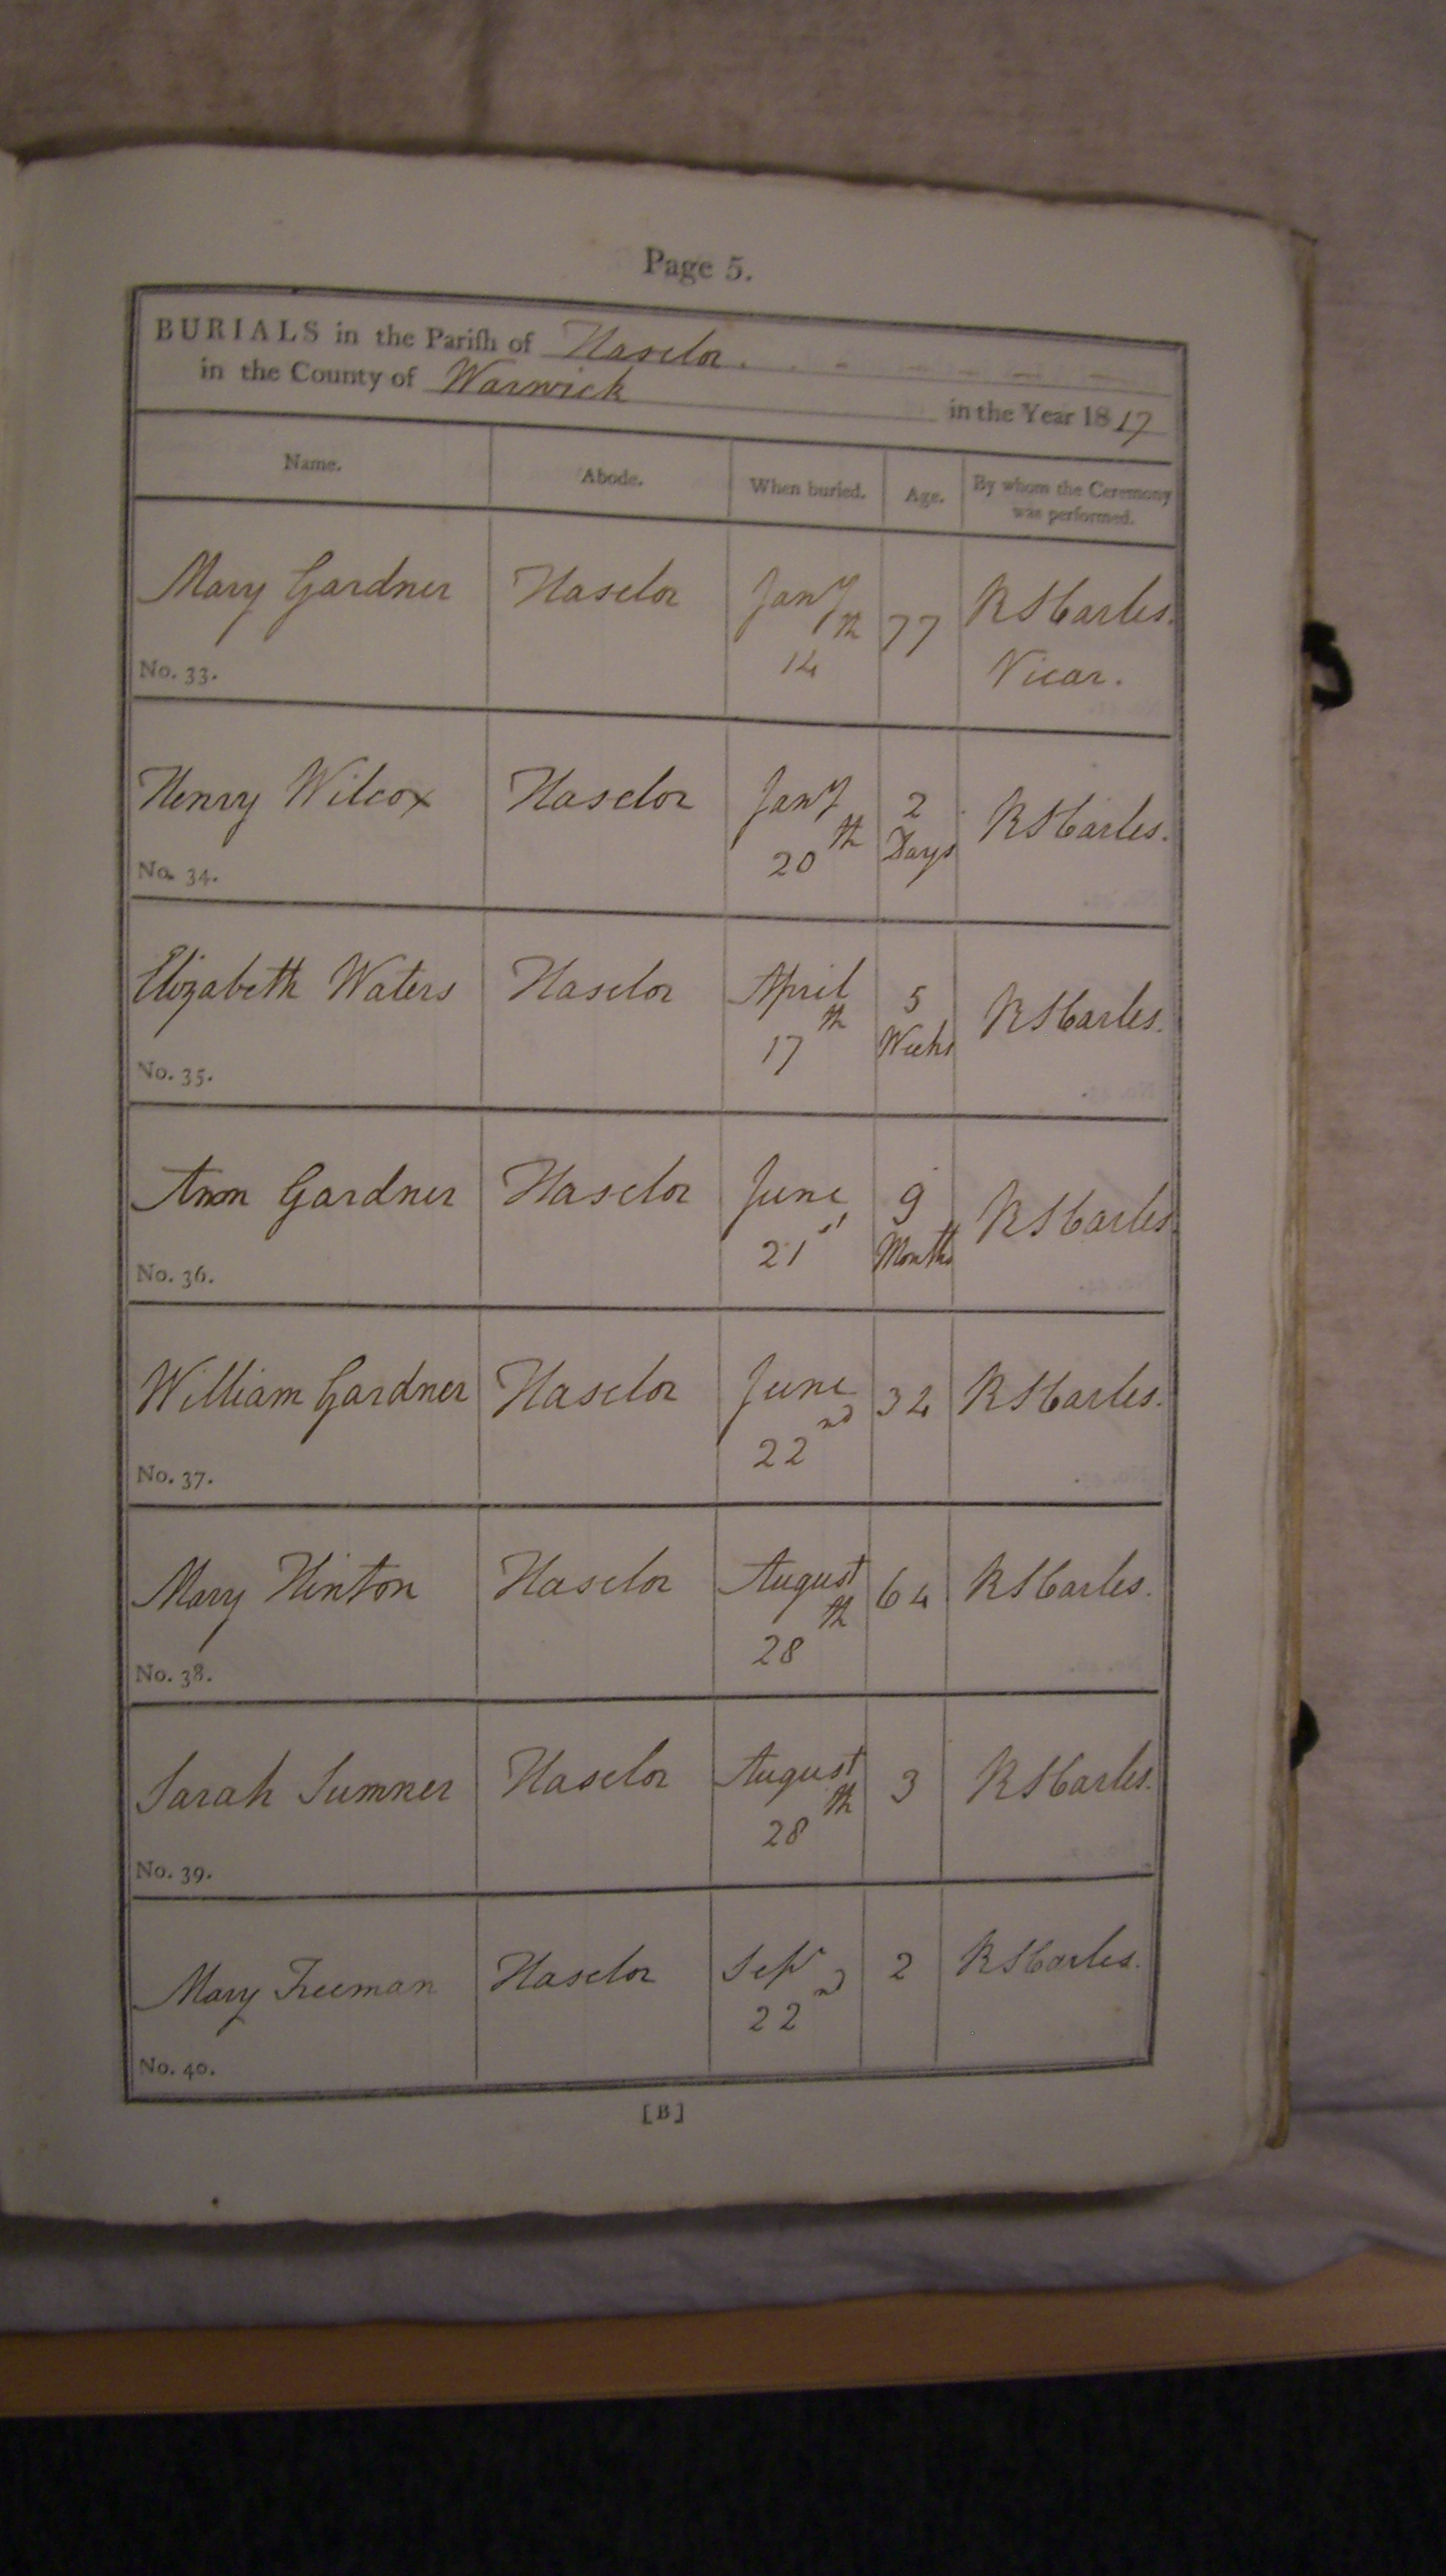 Page 5.
BURIALS in the Pariſh of Haselor
in the County of Warwick in the Year 1817
Name. Abode. When buried. Age. By whom the Ceremony was performed.
Mary Gardner Haselor Jany 14th 77 R S Carles. Vicar.
No. 33.
Henry Wilcox Haselor Jany 20th 2 Days R S Carles.
No. 34.
Elizabeth Waters Haselor April 17th 5 Weeks R S Carles.
No. 35.
Ann Gardner Haselor June 21st 9 Months R S Carles.
No. 36.
William Gardner Haselor June 22nd 34 R S Carles.
No. 37.
Mary Hinton Haselor August 28th 64 R S Carles.
No. 38.
Sarah Sumner Haselor August 28th 3 R S Carles.
No. 39.
Mary Freeman Haselor Sepr 22nd 2 R S Carles.
No. 40.
[B]